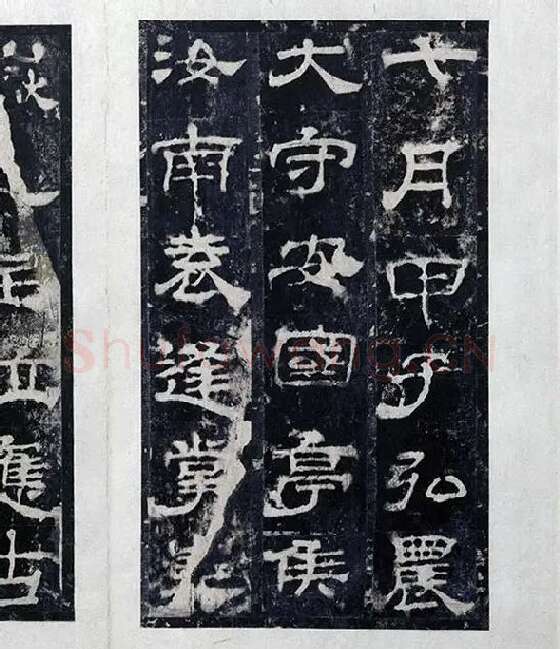 七月甲子弘農
大守安國亭侯
汝南袁逢掌
嶽主位應古
Shufawang.CN